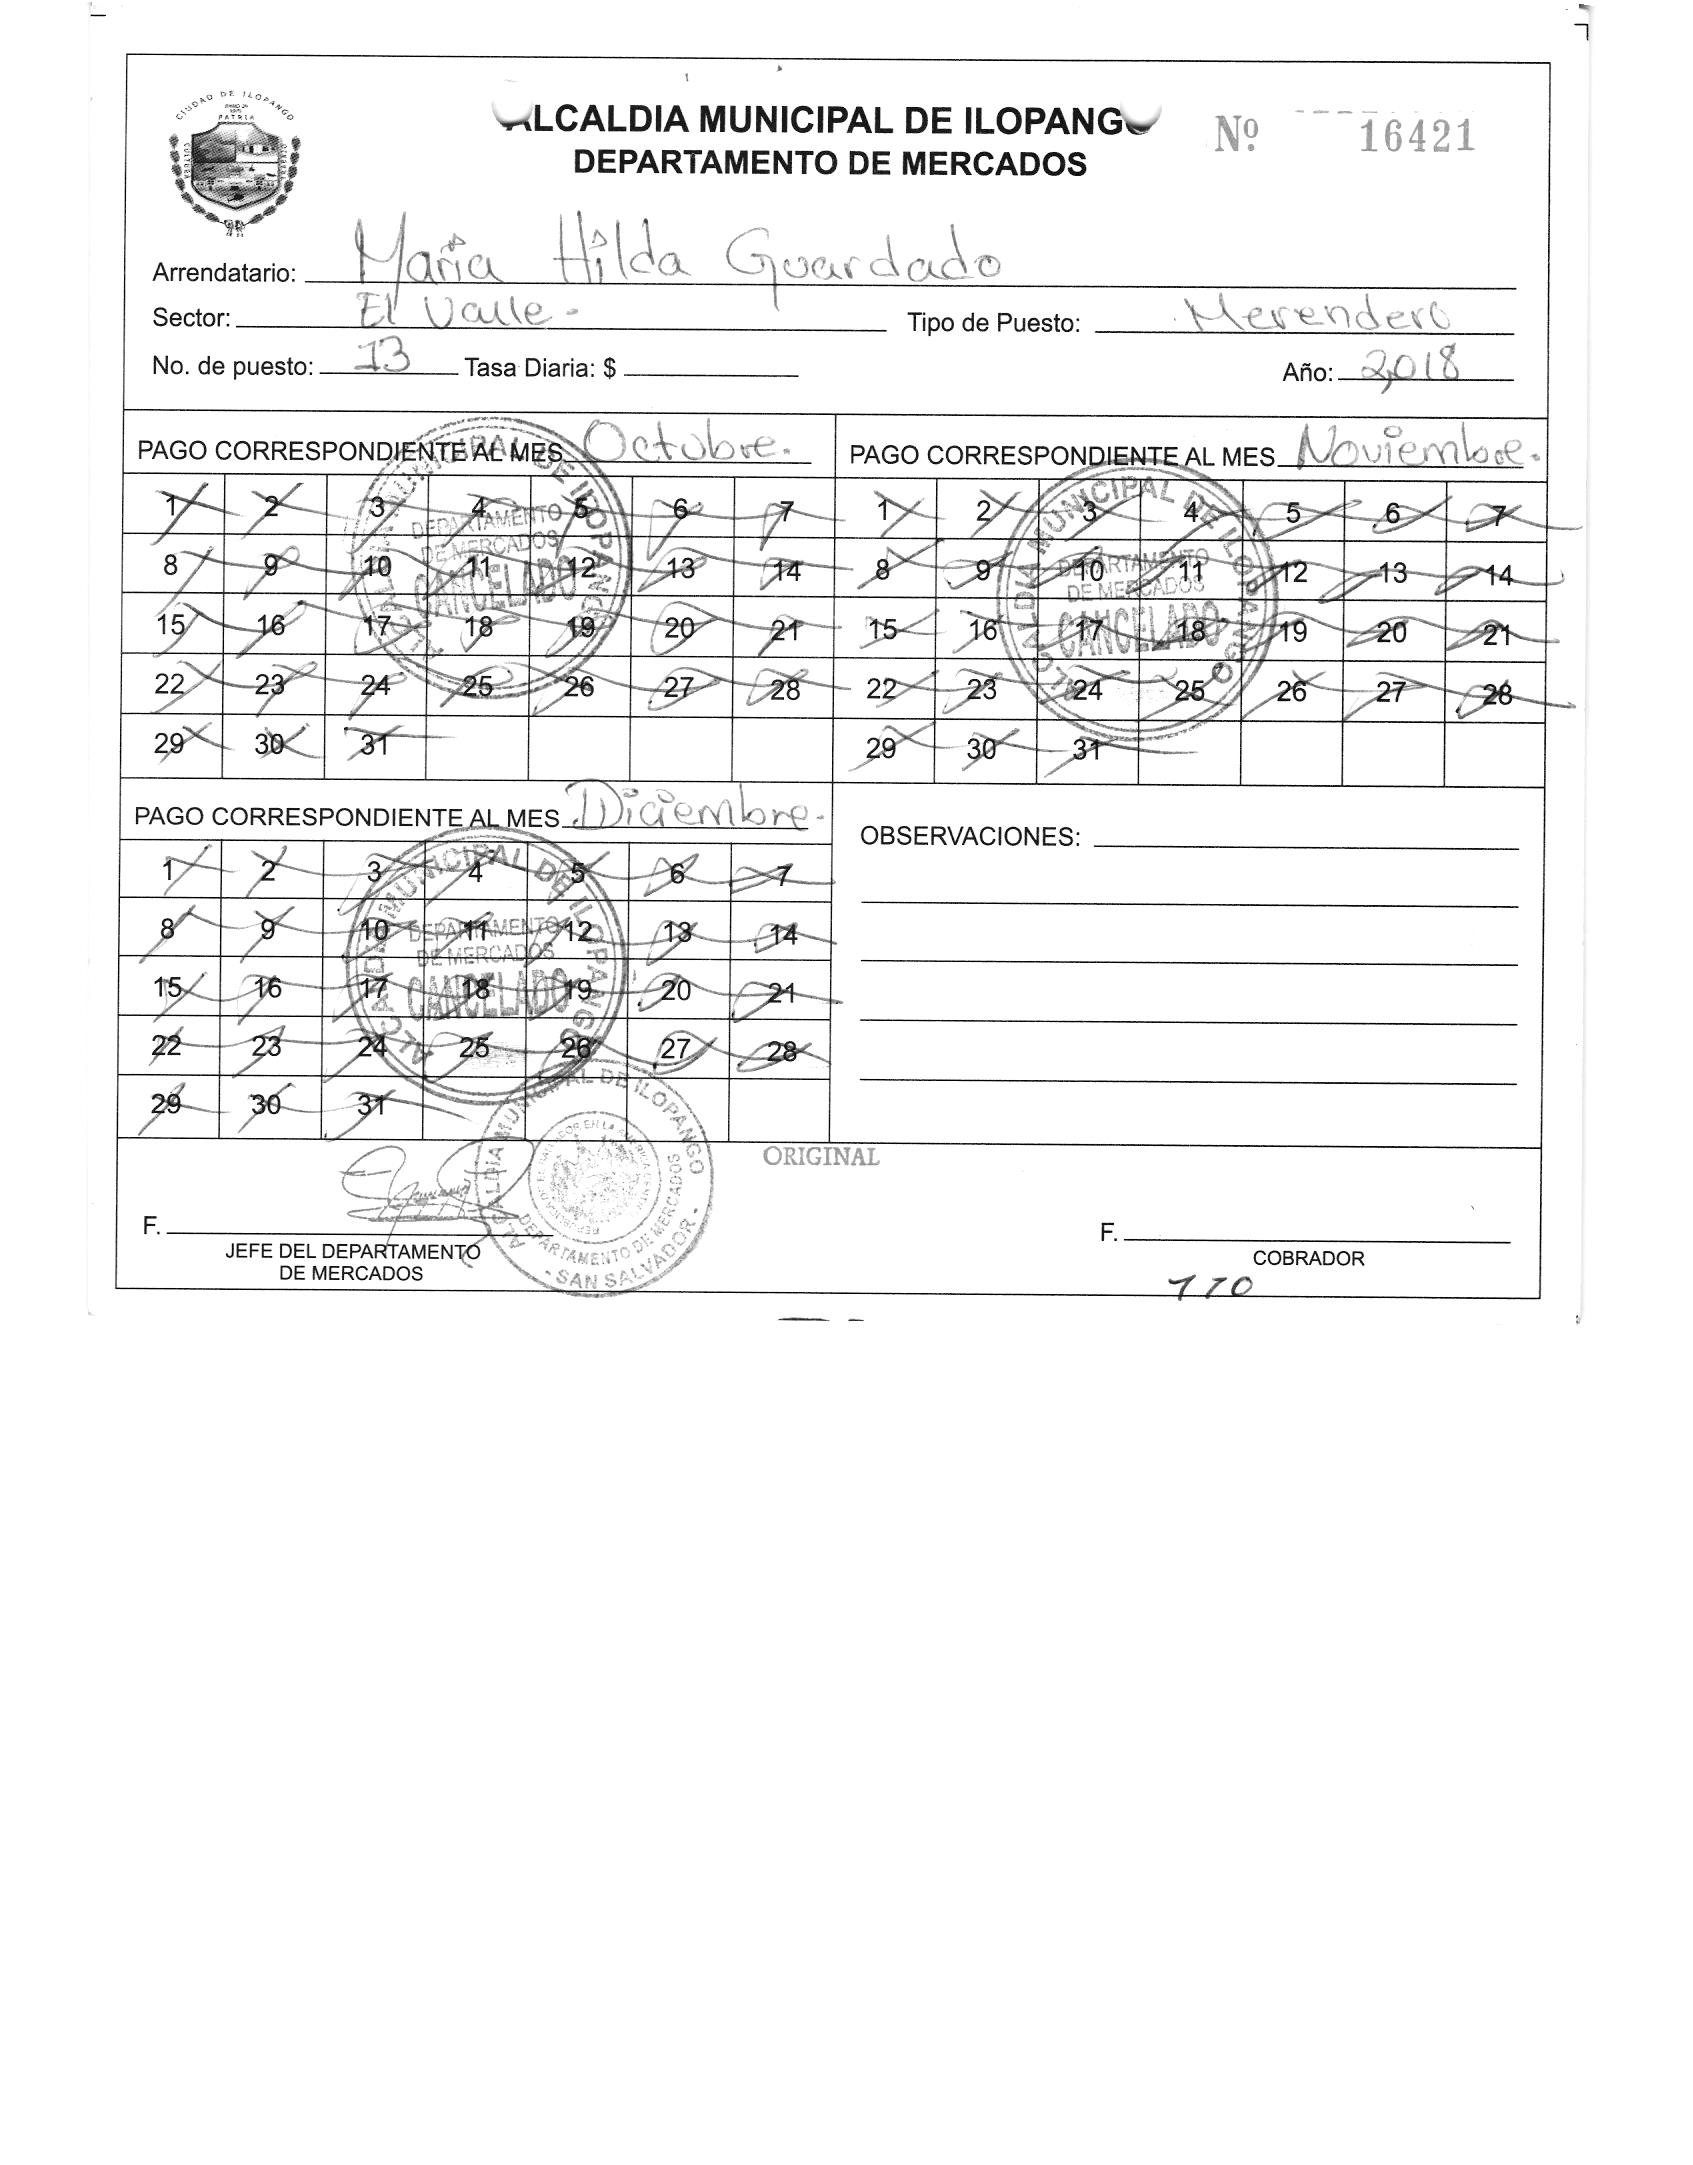 CIUDAD DE ILOPANGO
PATRIA
CULTURA
LIBERTAD
ALCALDIA MUNICIPAL DE ILOPANGO
Nº 16421
DEPARTAMENTO DE MERCADOS
Arrendatario: Maria Hilda Guardado
Sector: El Valle - Tipo de Puesto: Merendero
No. de puesto: 13 Tasa Diaria: $ Año: 2,018
PAGO CORRESPONDIENTE AL MES Octubre.
1 2 3 4 5 6 7
8 9 10 11 12 13 14
15 16 17 18 19 20 21
22 23 24 25 26 27 28
29 30 31
ALCALDIA MUNICIPAL DE ILOPANGO
DEPARTAMENTO
DE MERCADOS
CANCELADO
PAGO CORRESPONDIENTE AL MES Noviembre.
1 2 3 4 5 6 7
8 9 10 11 12 13 14
15 16 17 18 19 20 21
22 23 24 25 26 27 28
29 30 31
ALCALDIA MUNICIPAL DE ILOPANGO
DEPARTAMENTO
DE MERCADOS
CANCELADO
PAGO CORRESPONDIENTE AL MES Diciembre.
1 2 3 4 5 6 7
8 9 10 11 12 13 14
15 16 17 18 19 20 21
22 23 24 25 26 27 28
29 30 31
ALCALDIA MUNICIPAL DE ILOPANGO
DEPARTAMENTO
DE MERCADOS
CANCELADO
OBSERVACIONES:
ORIGINAL
ALCALDIA MUNICIPAL DE ILOPANGO
DEPARTAMENTO DE MERCADOS
- SAN SALVADOR -
F.
JEFE DEL DEPARTAMENTO
DE MERCADOS
F.
COBRADOR
110